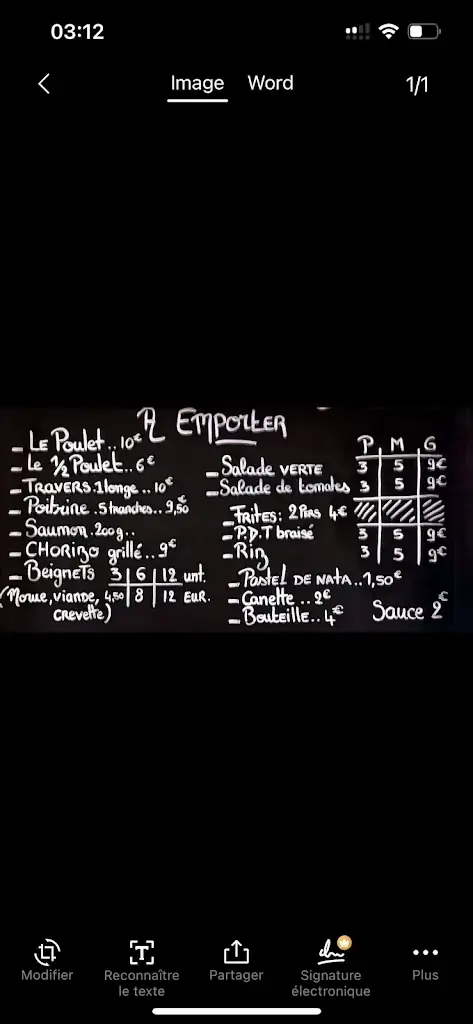 03:12
Image Word 1/1
A EMPORTER
- LE Poulet.. 10€
- Le 1/2 Poulet.. 6€
- TRAVERS.1 longe .. 10€
- Poitrine .5 tranches.. 9,50
- Saumon.200g..
- CHORIZO grillé.. 9€
- BeigneTs 3 | 6 | 12 unt.
4,50 | 8 | 12 EUR.
(Morue, viande, crevette)
P M G
- Salade VERTE 3 5 9€
- Salade de tomates 3 5 9€
- FRITES: 2 PERS 4€
- P.D.T braisé 3 5 9€
- Riz 3 5 9€
- Pastel DE NATA..1,50€
- Canette .. 2€
- Bouteille.. 4€
Sauce 2€
Modifier
Reconnaître le texte
Partager
Signature électronique
Plus